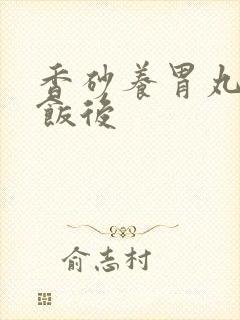 香砂養胃丸
飯後
俞志村